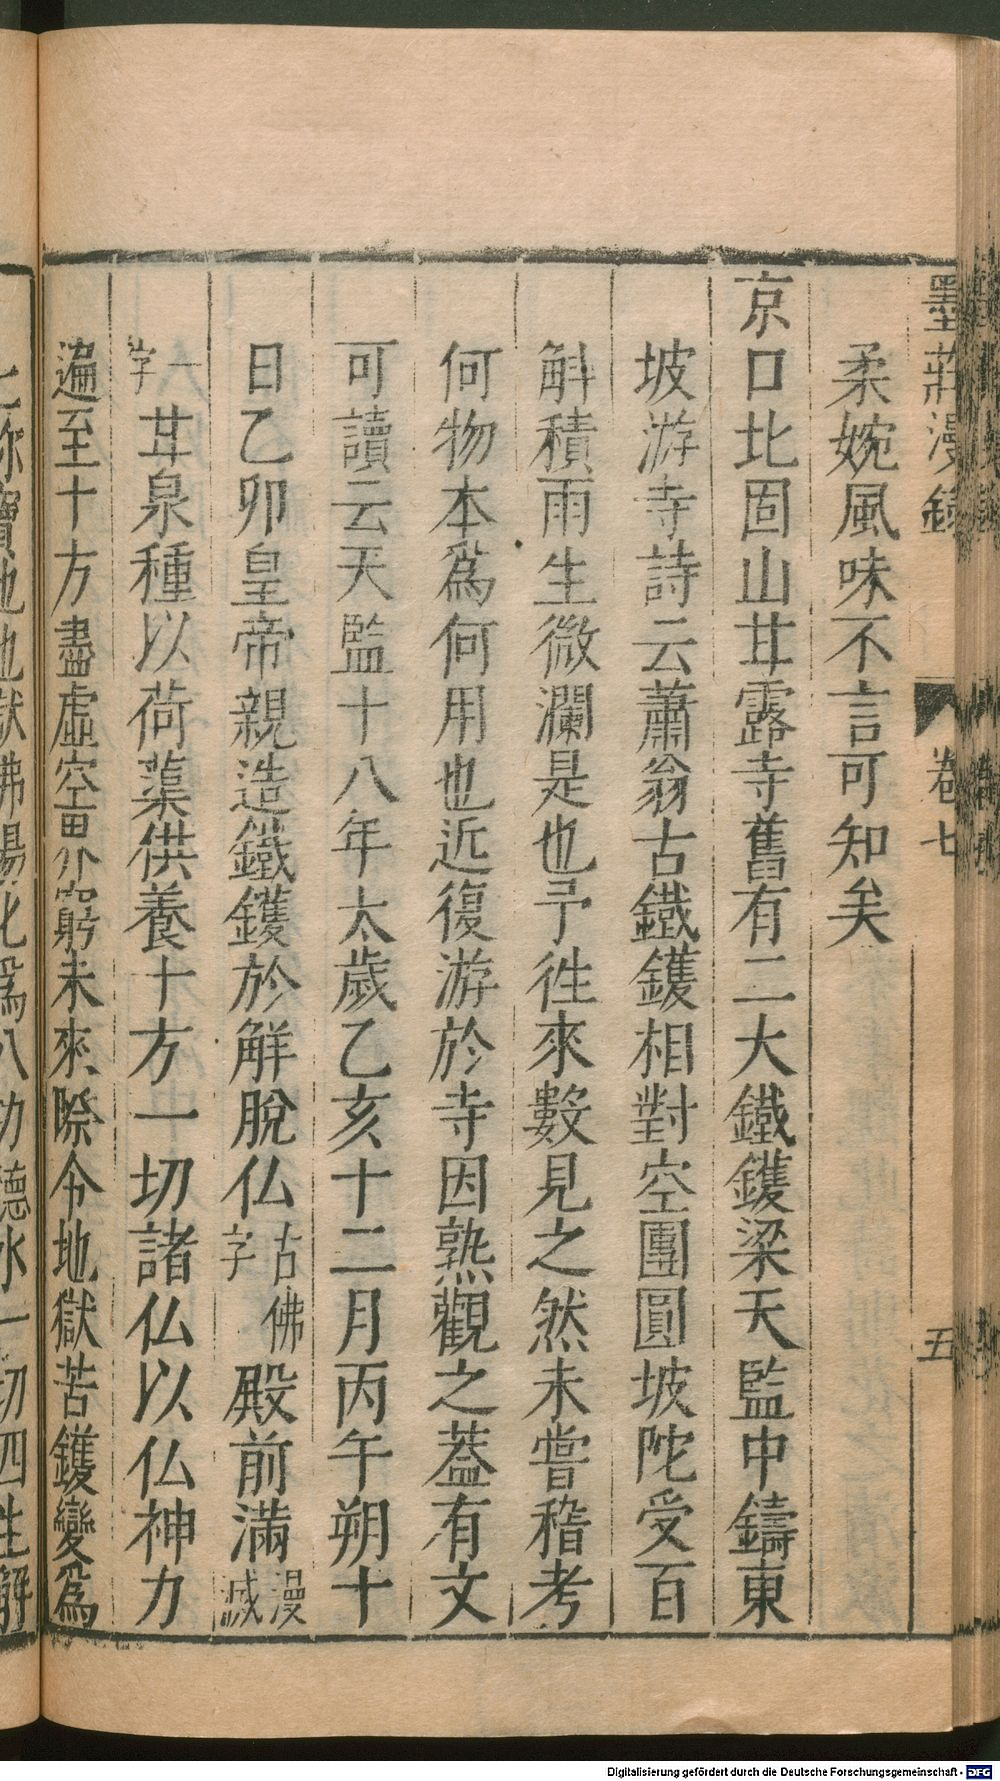 墨莊漫錄 卷七 五
柔婉風味不言可知矣
京口北固山甘露寺舊有二大鐵鑊梁天監中鑄東
坡游寺詩云蕭翁古鐵鑊相對空團圓坡陀受百
斛積雨生微瀾是也予徃來數見之然未嘗稽考
何物本爲何用也近復游於寺因熟觀之蓋有文
可讀云天監十八年太歲乙亥十二月丙午朔十
日乙卯皇帝親造鐵鑊於解脫仏古佛字殿前滿漫滅
一字甘泉種以荷蕖供養十方一切諸仏以仏神力
遍至十方盡虛空界窮未來際令地獄苦鑊變爲
七珎寶池地獄沸湯化爲八功德水一切四生解
Digitalisierung gefördert durch die Deutsche Forschungsgemeinschaft - DFG